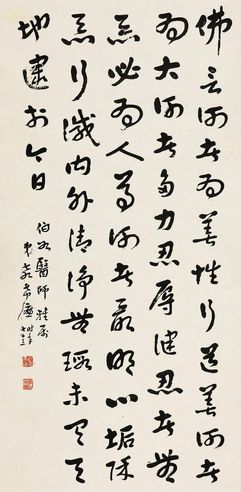 佛言何者為善惟行道善何者
為大何者多力忍辱健忍者無
惡必為人尊何者最明心垢除
惡行滅內外清淨無瑕未有天
地逮於今日
伯 醫師雅屬